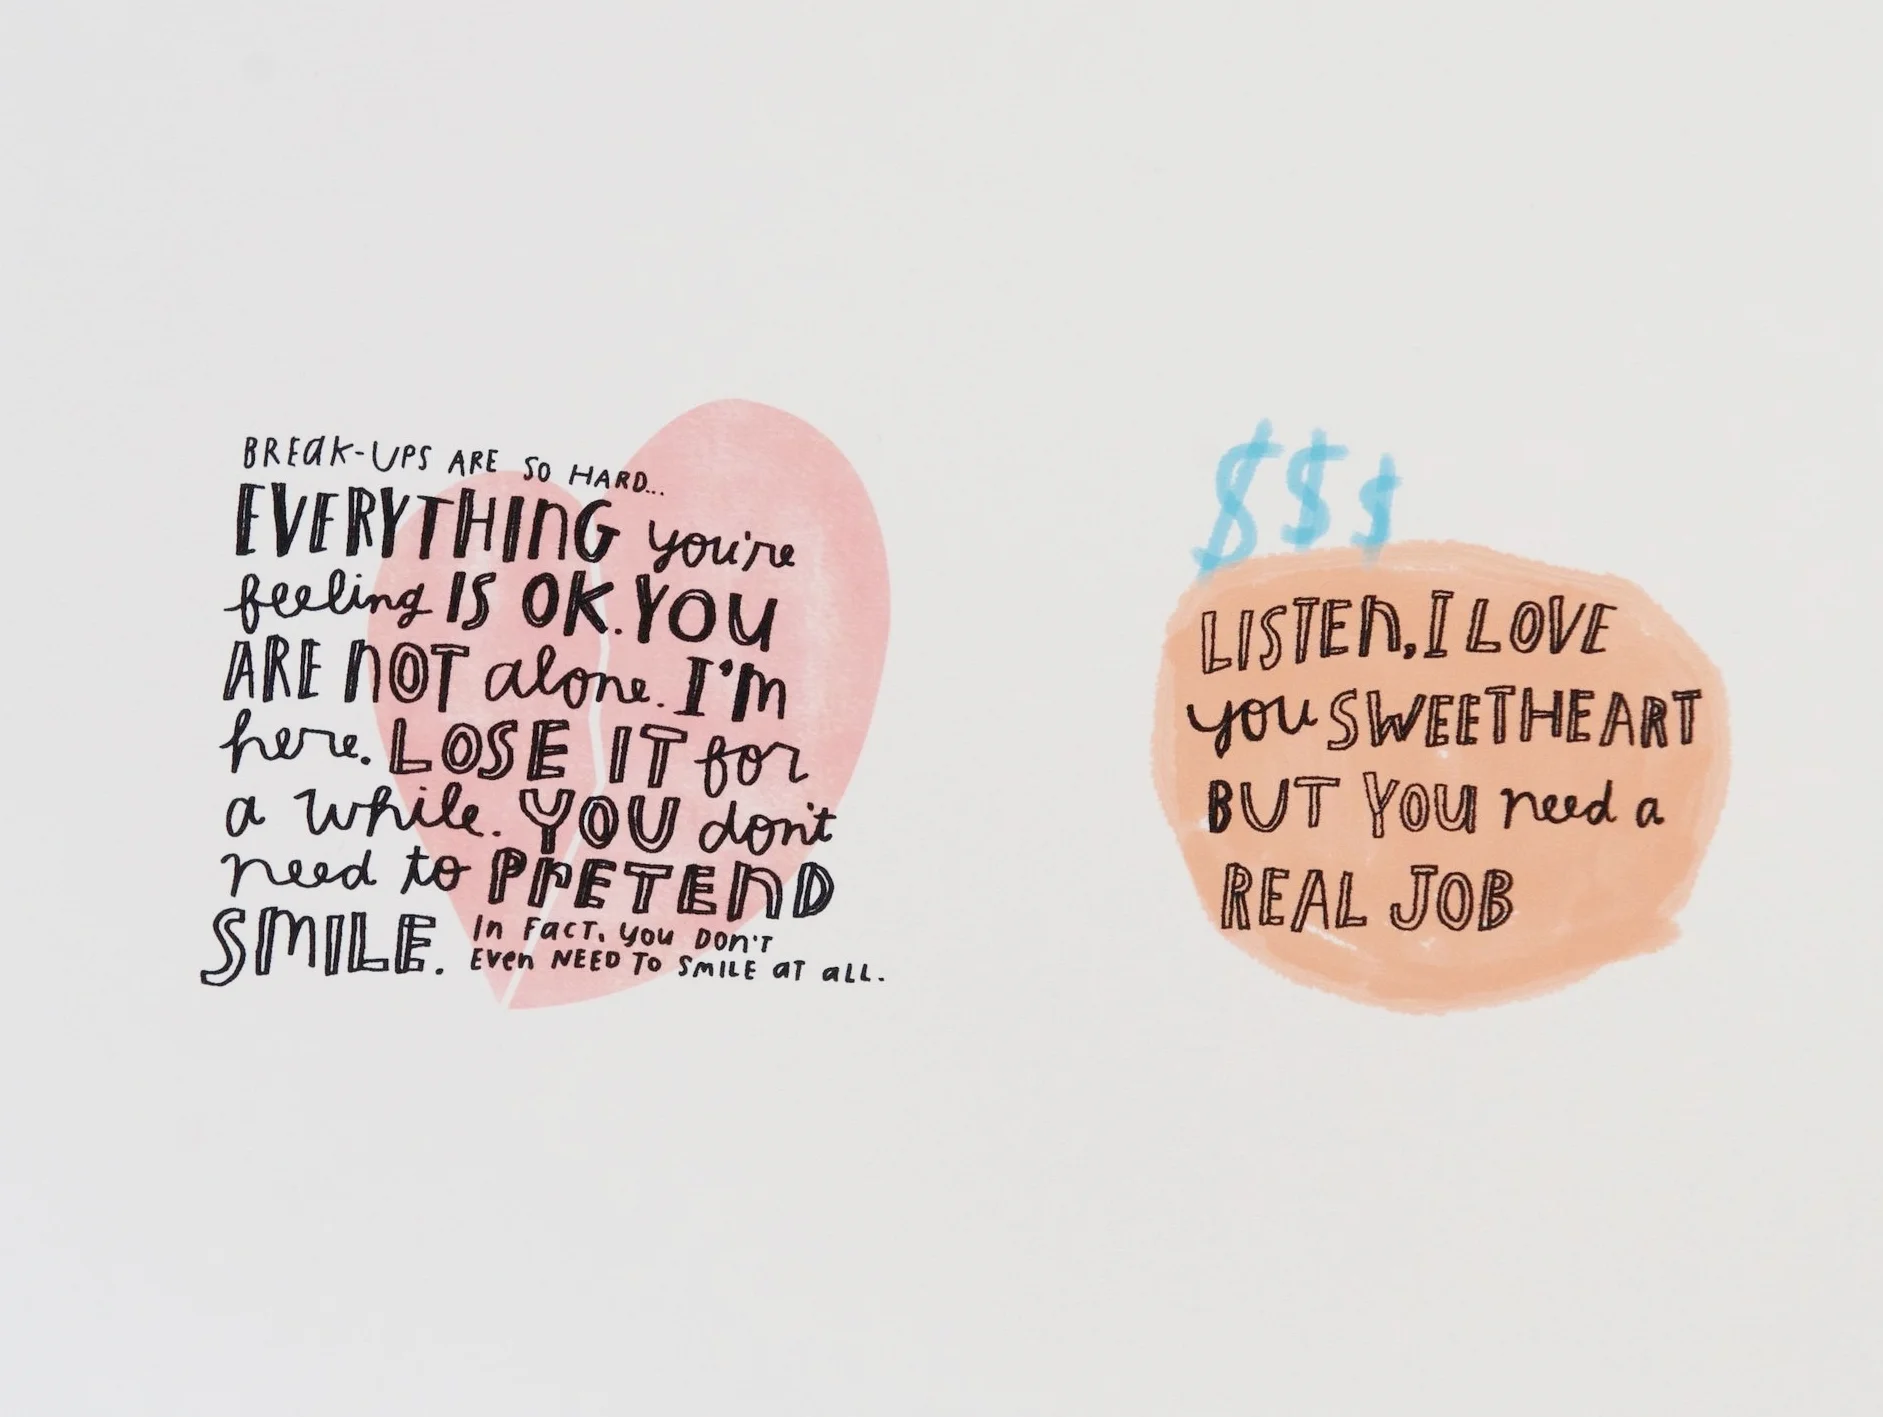 BREAK-UPS ARE SO HARD...
EVERYTHING you're
feeling IS OK. YOU
ARE NOT alone. I'm
here. LOSE IT for
a while. YOU don't
need to PRETEND
SMILE. In FACT, you DON'T
EVEN NEED TO SMILE AT ALL.
$$$
LISTEN, I LOVE
you SWEETHEART
BUT YOU need a
REAL JOB